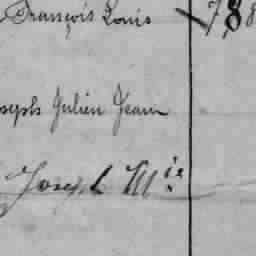 François Louis 788
Joseph Julien Jean
Joseph M^ie